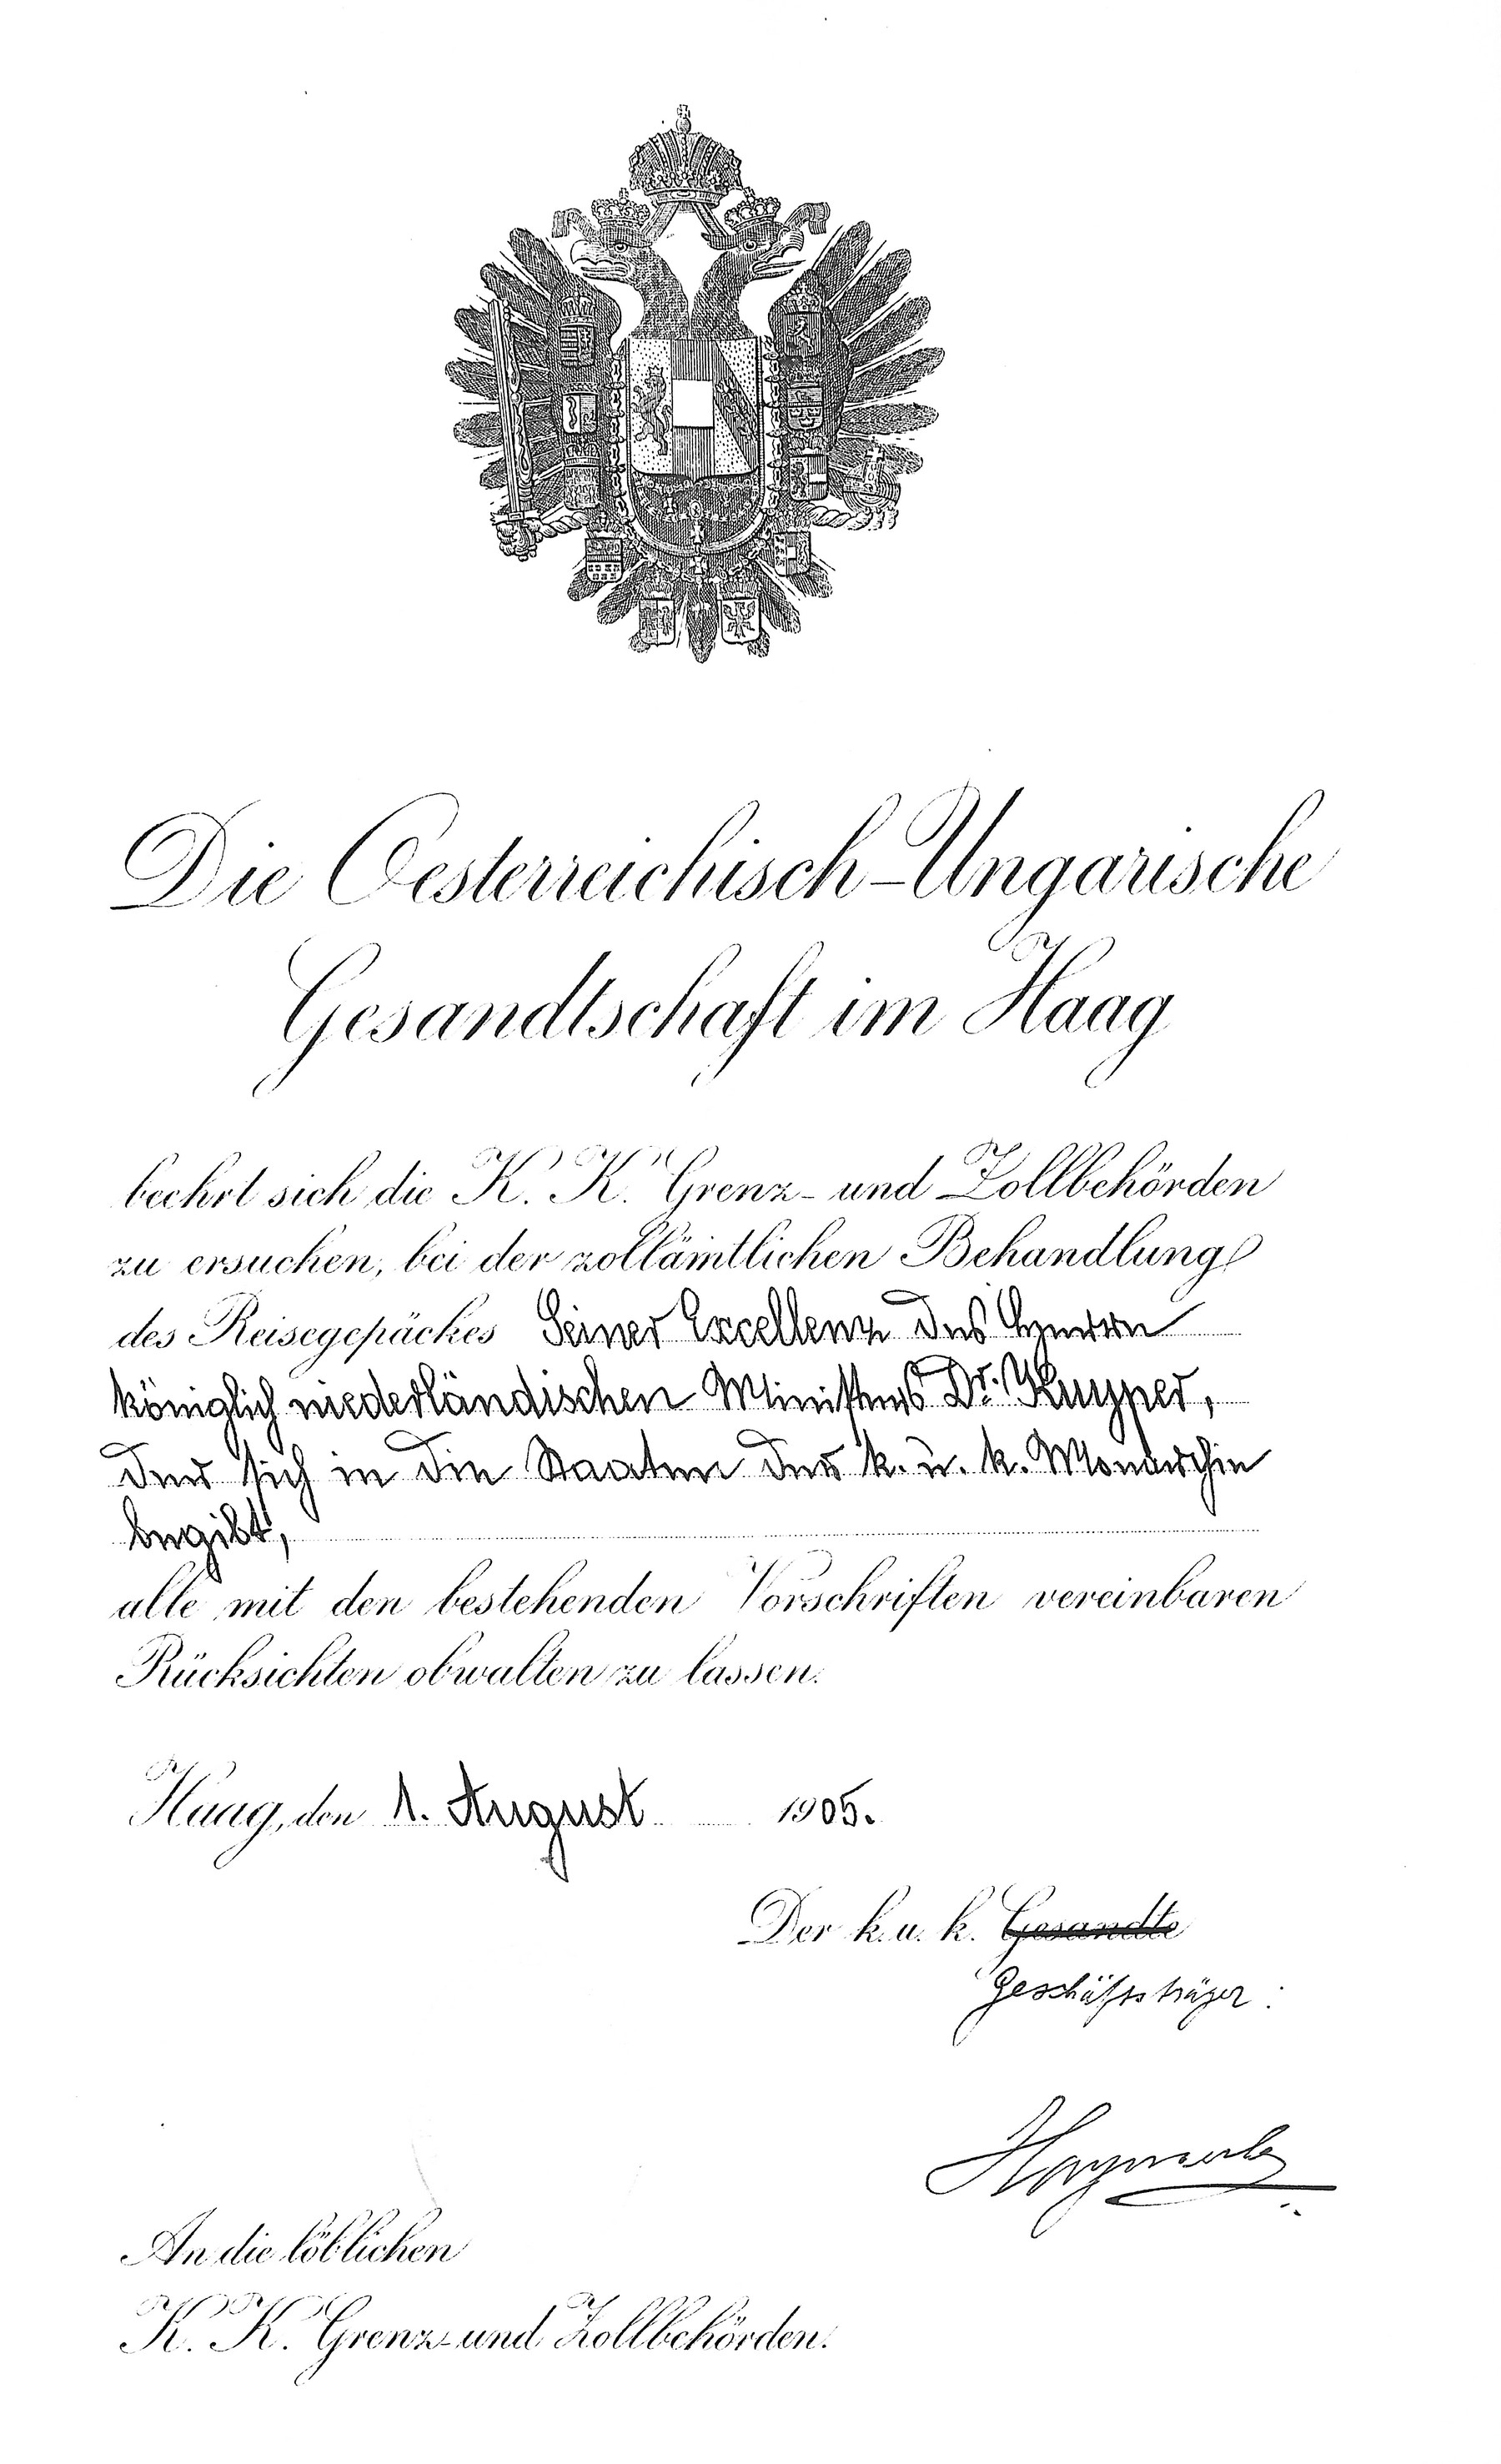 Die Oesterreichisch-Ungarische
Gesandtschaft im Haag
beehrt sich die K. K. Grenz- und Zollbehörden
zu ersuchen, bei der zollämtlichen Behandlung
des Reisegepäckes Seiner Excellenz des Herrn
königlich niederländischen Ministers Dr. Kuyper,
der sich in die Staaten der k. u. k. Monarchie
begibt,
alle mit den bestehenden Vorschriften vereinbaren
Rücksichten obwalten zu lassen.
Haag, den 1. August 1905.
Der k. u. k. Gesandte
Geschäftsträger:
An die löblichen
K. K. Grenz- und Zollbehörden.